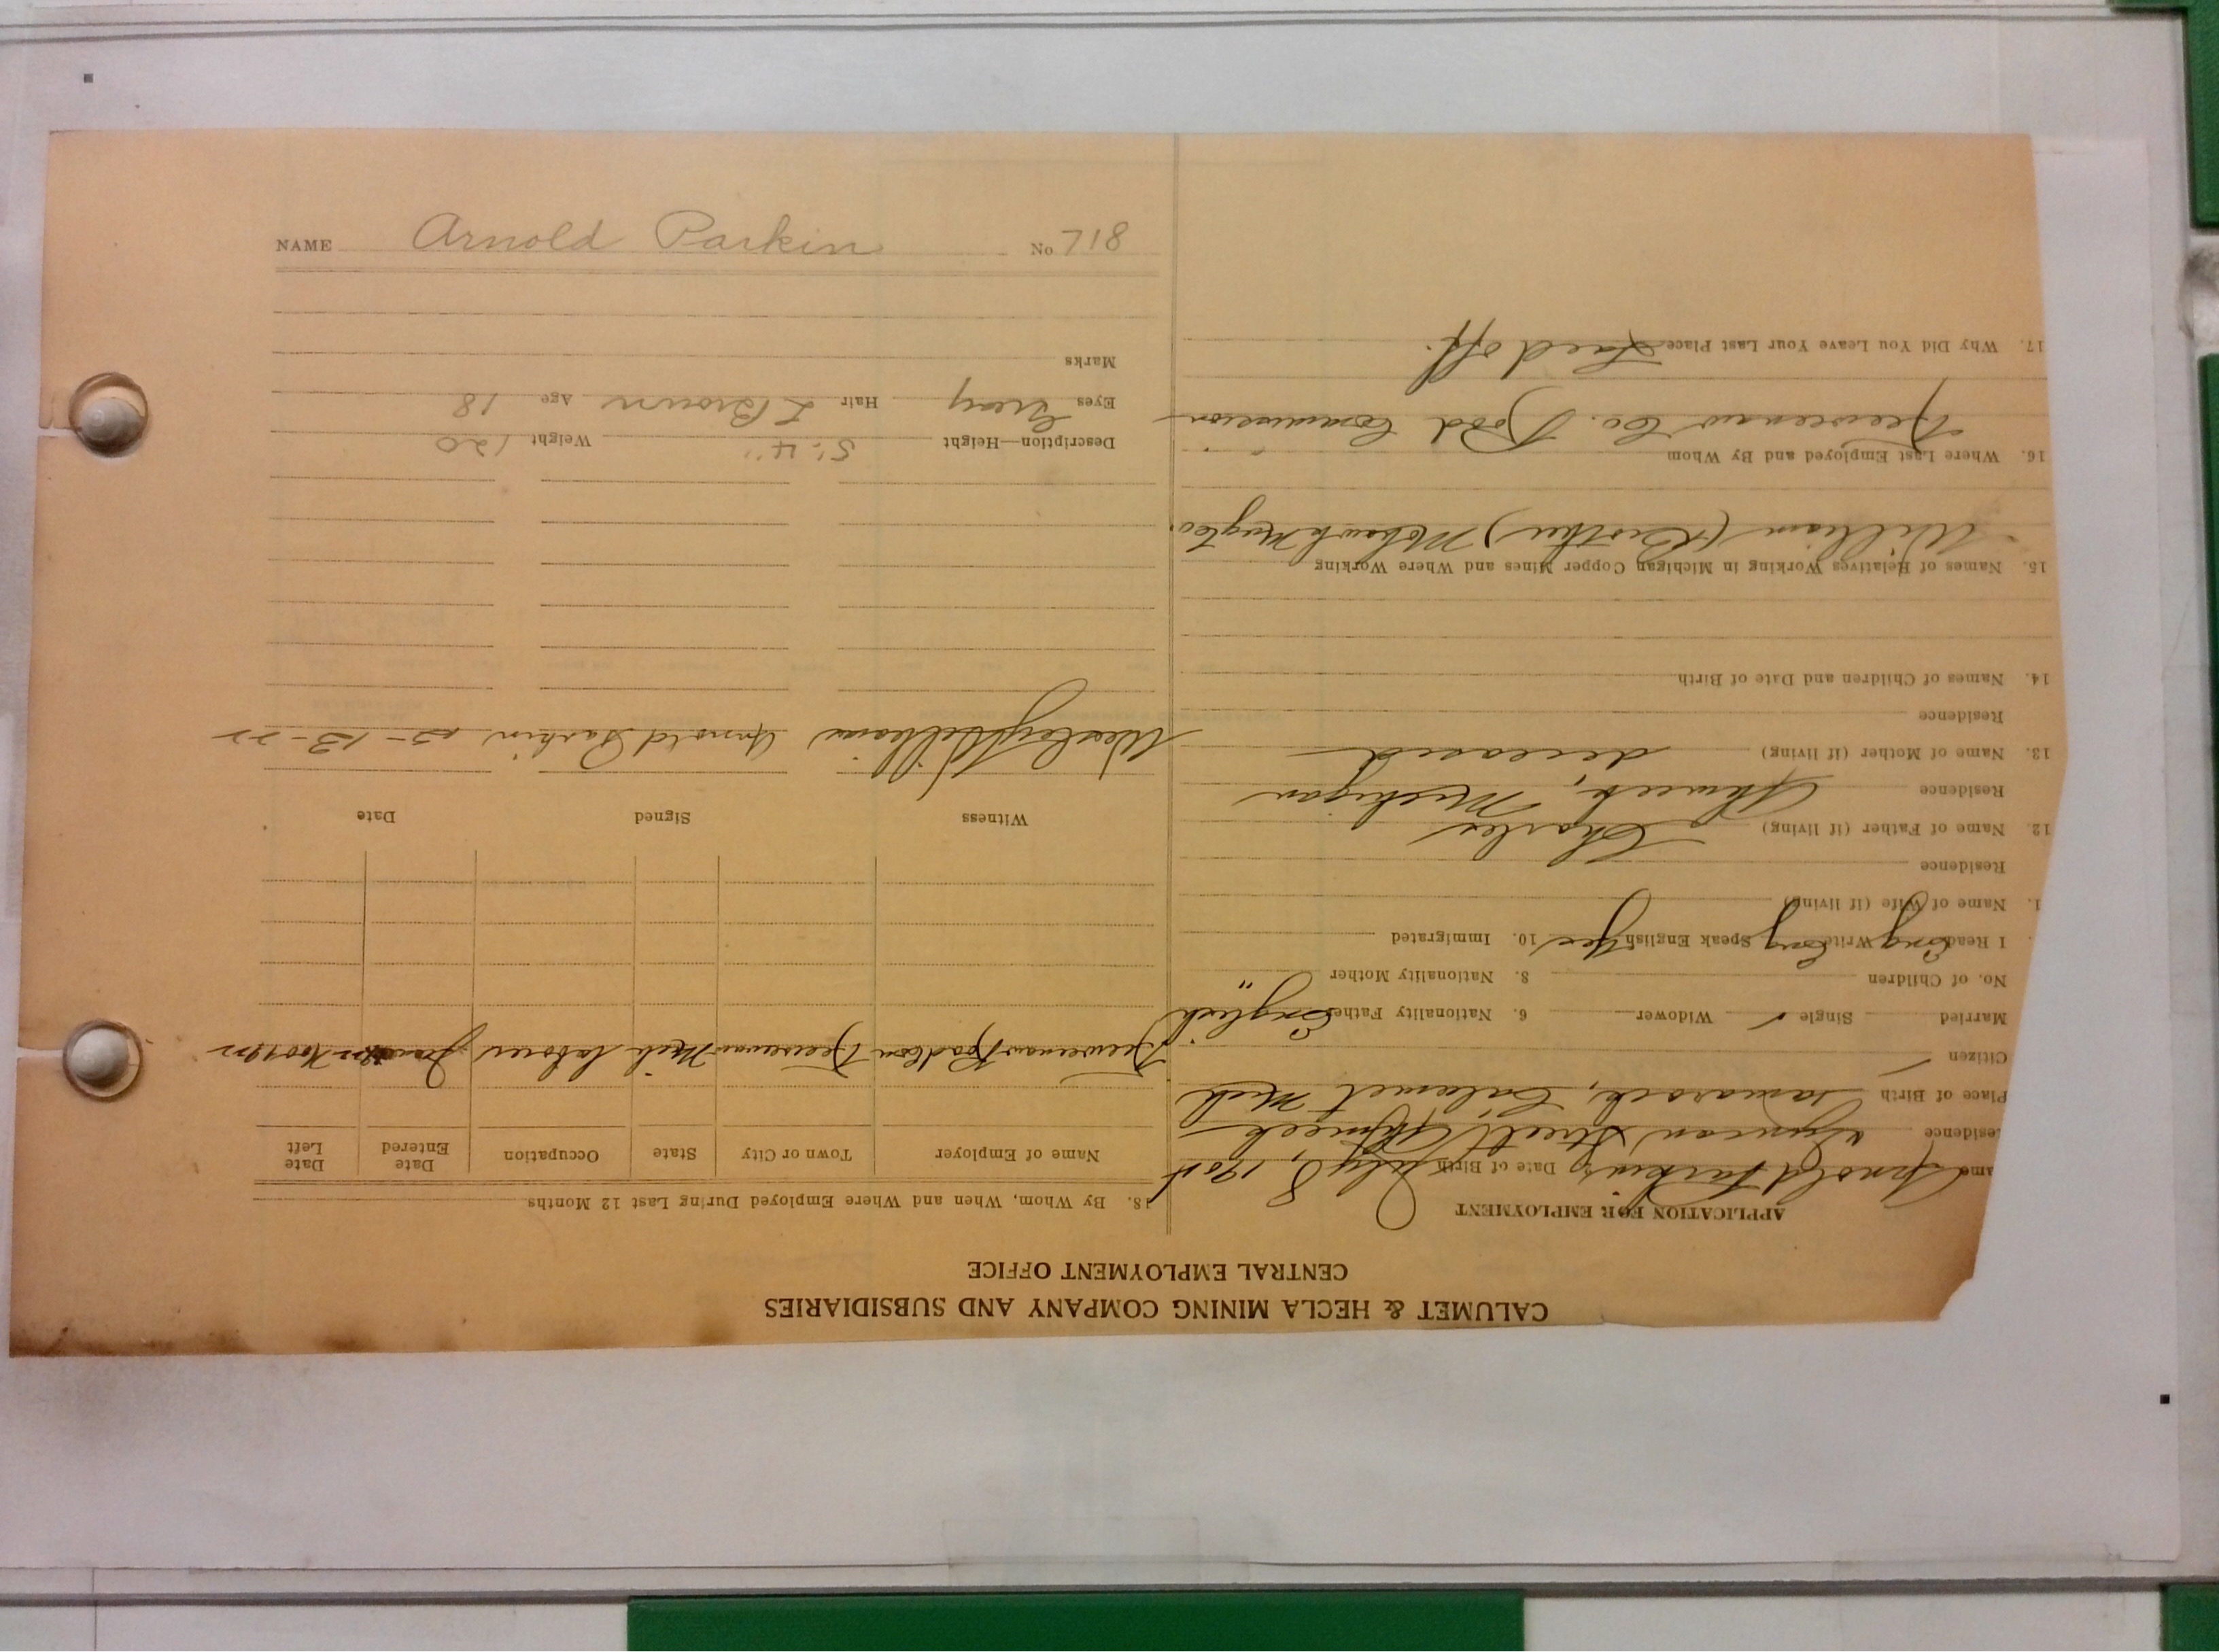 CALUMET & HECLA MINING COMPANY AND SUBSIDIARIES
CENTRAL EMPLOYMENT OFFICE
APPLICATION FOR EMPLOYMENT
ame Arnold Parkin Date of Birth July 8, 1904
esidence Street, Ahmeek
Place of Birth Tamarack, Calumet Mich
Citizen ✓
Married Single ✓ Widower 6. Nationality Father English
No. of Children 8. Nationality Mother "
I Read Eng Write Eng Speak English Yes 10. Immigrated
1. Name of Wife (if living)
Residence
12. Name of Father (if living) Charles
Residence Ahmeek, Michigan
13. Name of Mother (if living) deceased
Residence
14. Names of Children and Date of Birth
15. Names of Relatives Working in Michigan Copper Mines and Where Working
William (Brother) Mohawk Mng Co.
16. Where Last Employed and By Whom
Keweenaw Co. Road Commission
17. Why Did You Leave Your Last Place Laid off.
18. By Whom, When and Where Employed During Last 12 Months
Name of Employer Town or City State Occupation Date Entered Date Left
Keweenaw Road Com Keweenaw Mich laborer
Witness Signed Date
Wesley Williams Arnold Parkin 13-22
Description—Height 5'.4" Weight 120
Eyes Gray Hair L Brown Age 18
Marks
NAME Arnold Parkin No 718